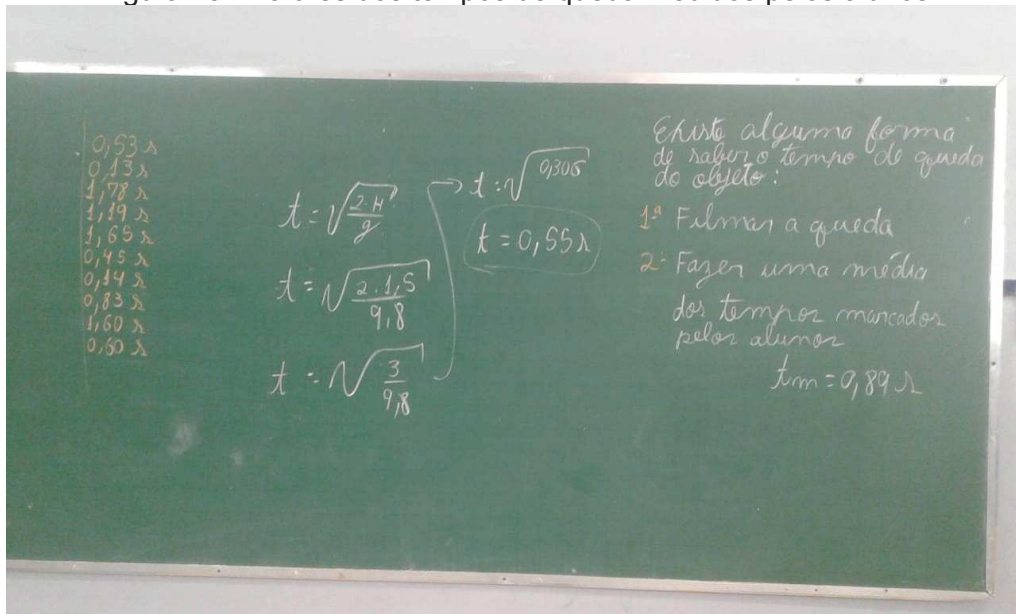 0,53 s
0,13 s
1,78 s
1,19 s
1,65 s
0,45 s
0,14 s
0,83 s
1,60 s
0,60 s
t = √(2.H/g)
t = √(2.1,5/9,8)
t = √(3/9,8)
→ t = √0,306
t = 0,55 s
Existe alguma forma
de saber o tempo de queda
do objeto:
1ª Filmar a queda
2ª Fazer uma média
dos tempos marcados
pelos alunos
tm = 0,89 s